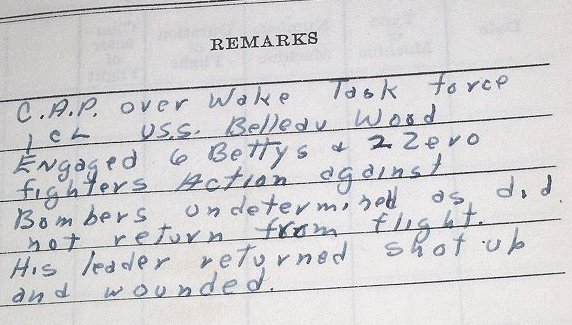 REMARKS
C.A.P. over Wake Task force
1 CL U.S.S. Belleau Wood
Engaged 6 Bettys & 2 Zero
fighters Action against
Bombers undetermined as did
not return from flight.
His leader returned shot up
and wounded.